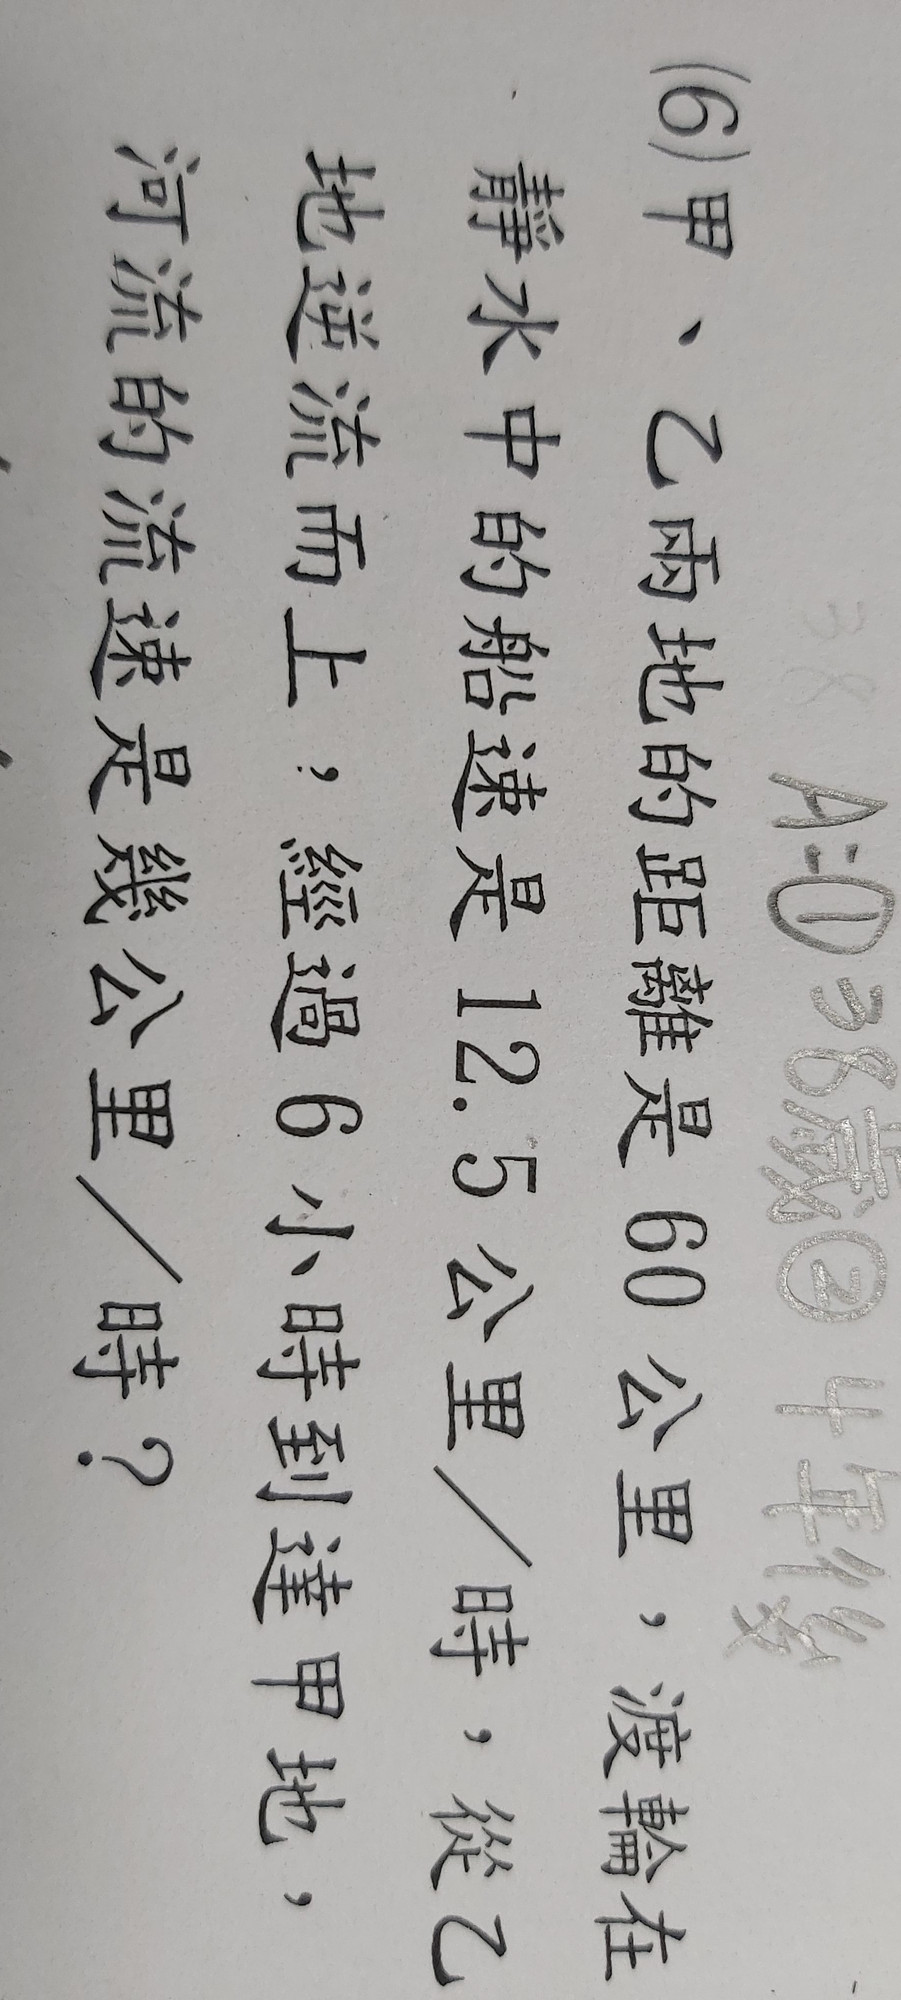 38
A:①38歲②4年後
(6)甲、乙兩地的距離是60公里,渡輪在
靜水中的船速是12.5公里/時,從乙
地逆流而上,經過6小時到達甲地,
河流的流速是幾公里/時?